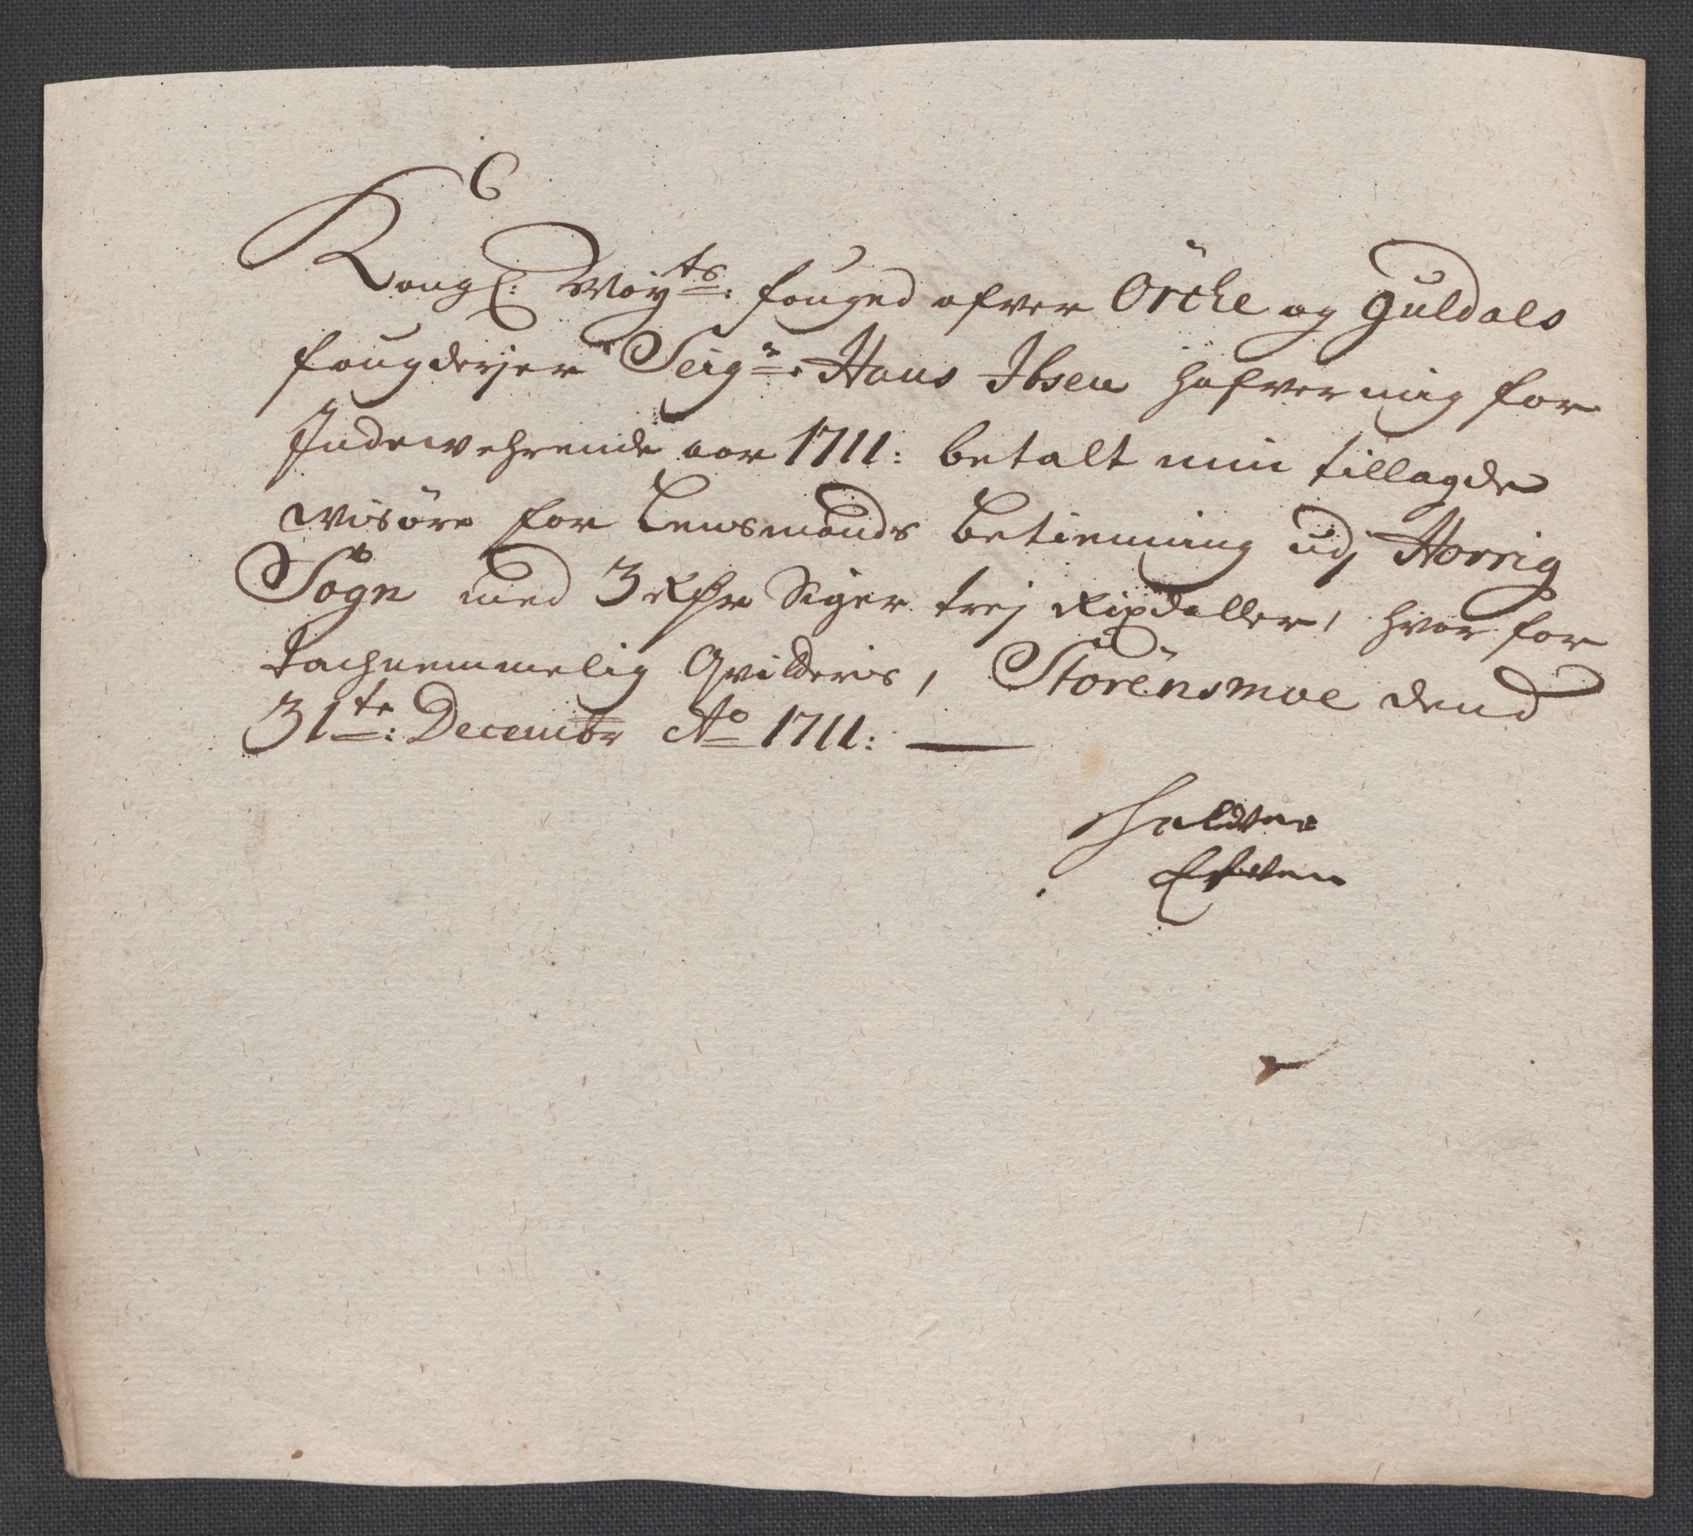 Kongl: Mayts: fouged ofver Örche og Guldals
fougderjer Seigr. Hans Ibsen hafver mig for
Indewehrende aar 1711: betalt min tillagde
visöre for Lensmands betienning udj Horrig
Sogn med 3 Rdr Siger trej Rixdaller, hvor for
tachnemmelig Qvitteris, Störensmoe dend
31te: Decembr Ao 1711:
Haldvor